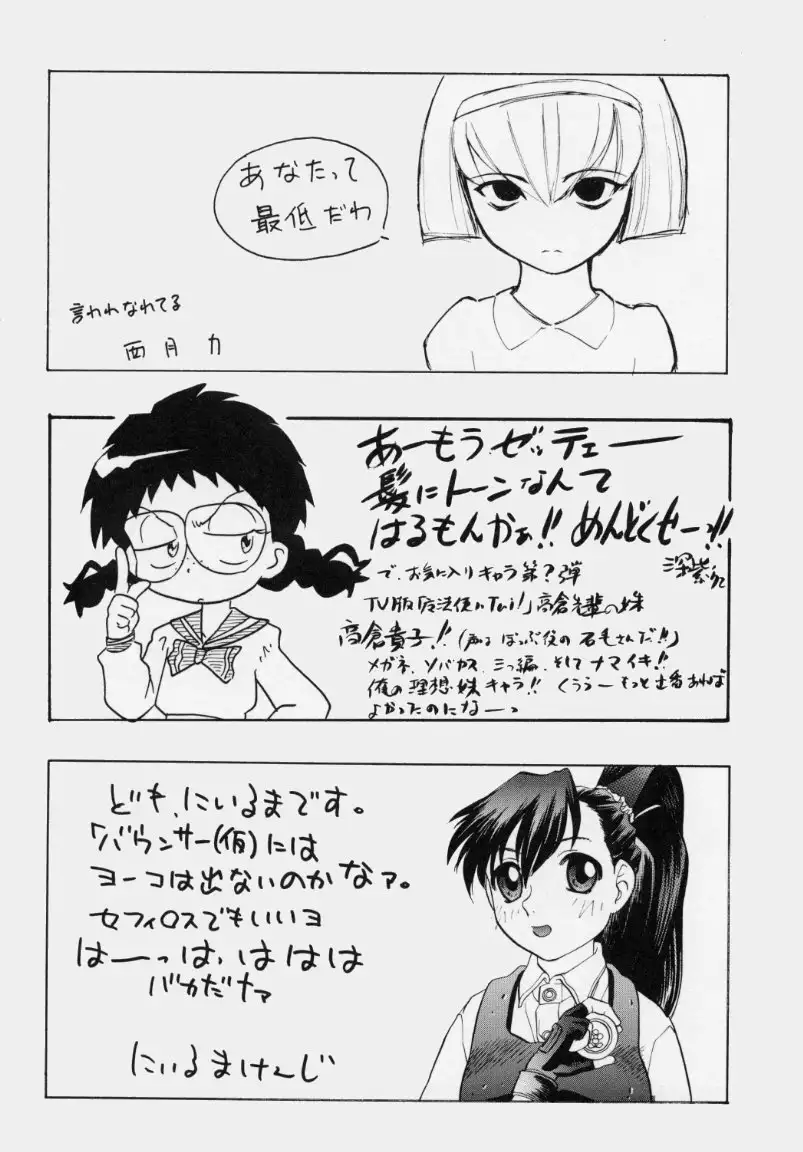 あなたって
最低だわ
言われなれてる
西月力
あーもうゼッテェー
髪にトーンなんて
はるもんかぁ!! めんどくせーっ!!
で、お気に入りキャラ第?弾
TV版「魔法使いTai!」高倉先輩の妹
高倉貴子!! (声る ぽっぷ役の石毛さんだ!!)
メガネ、ソバカス、三つ編、そしてナマイキ!!
俺の理想妹キャラ!! くぅうーもっと出番あれば
よかったのになーっ
ども、にいるまです。
「バウンサー(仮)には
ヨーコは出ないのかなァ。
セフィロスでもいいヨ
はーっは、ははは
バカだナァ
にいるまけーじ